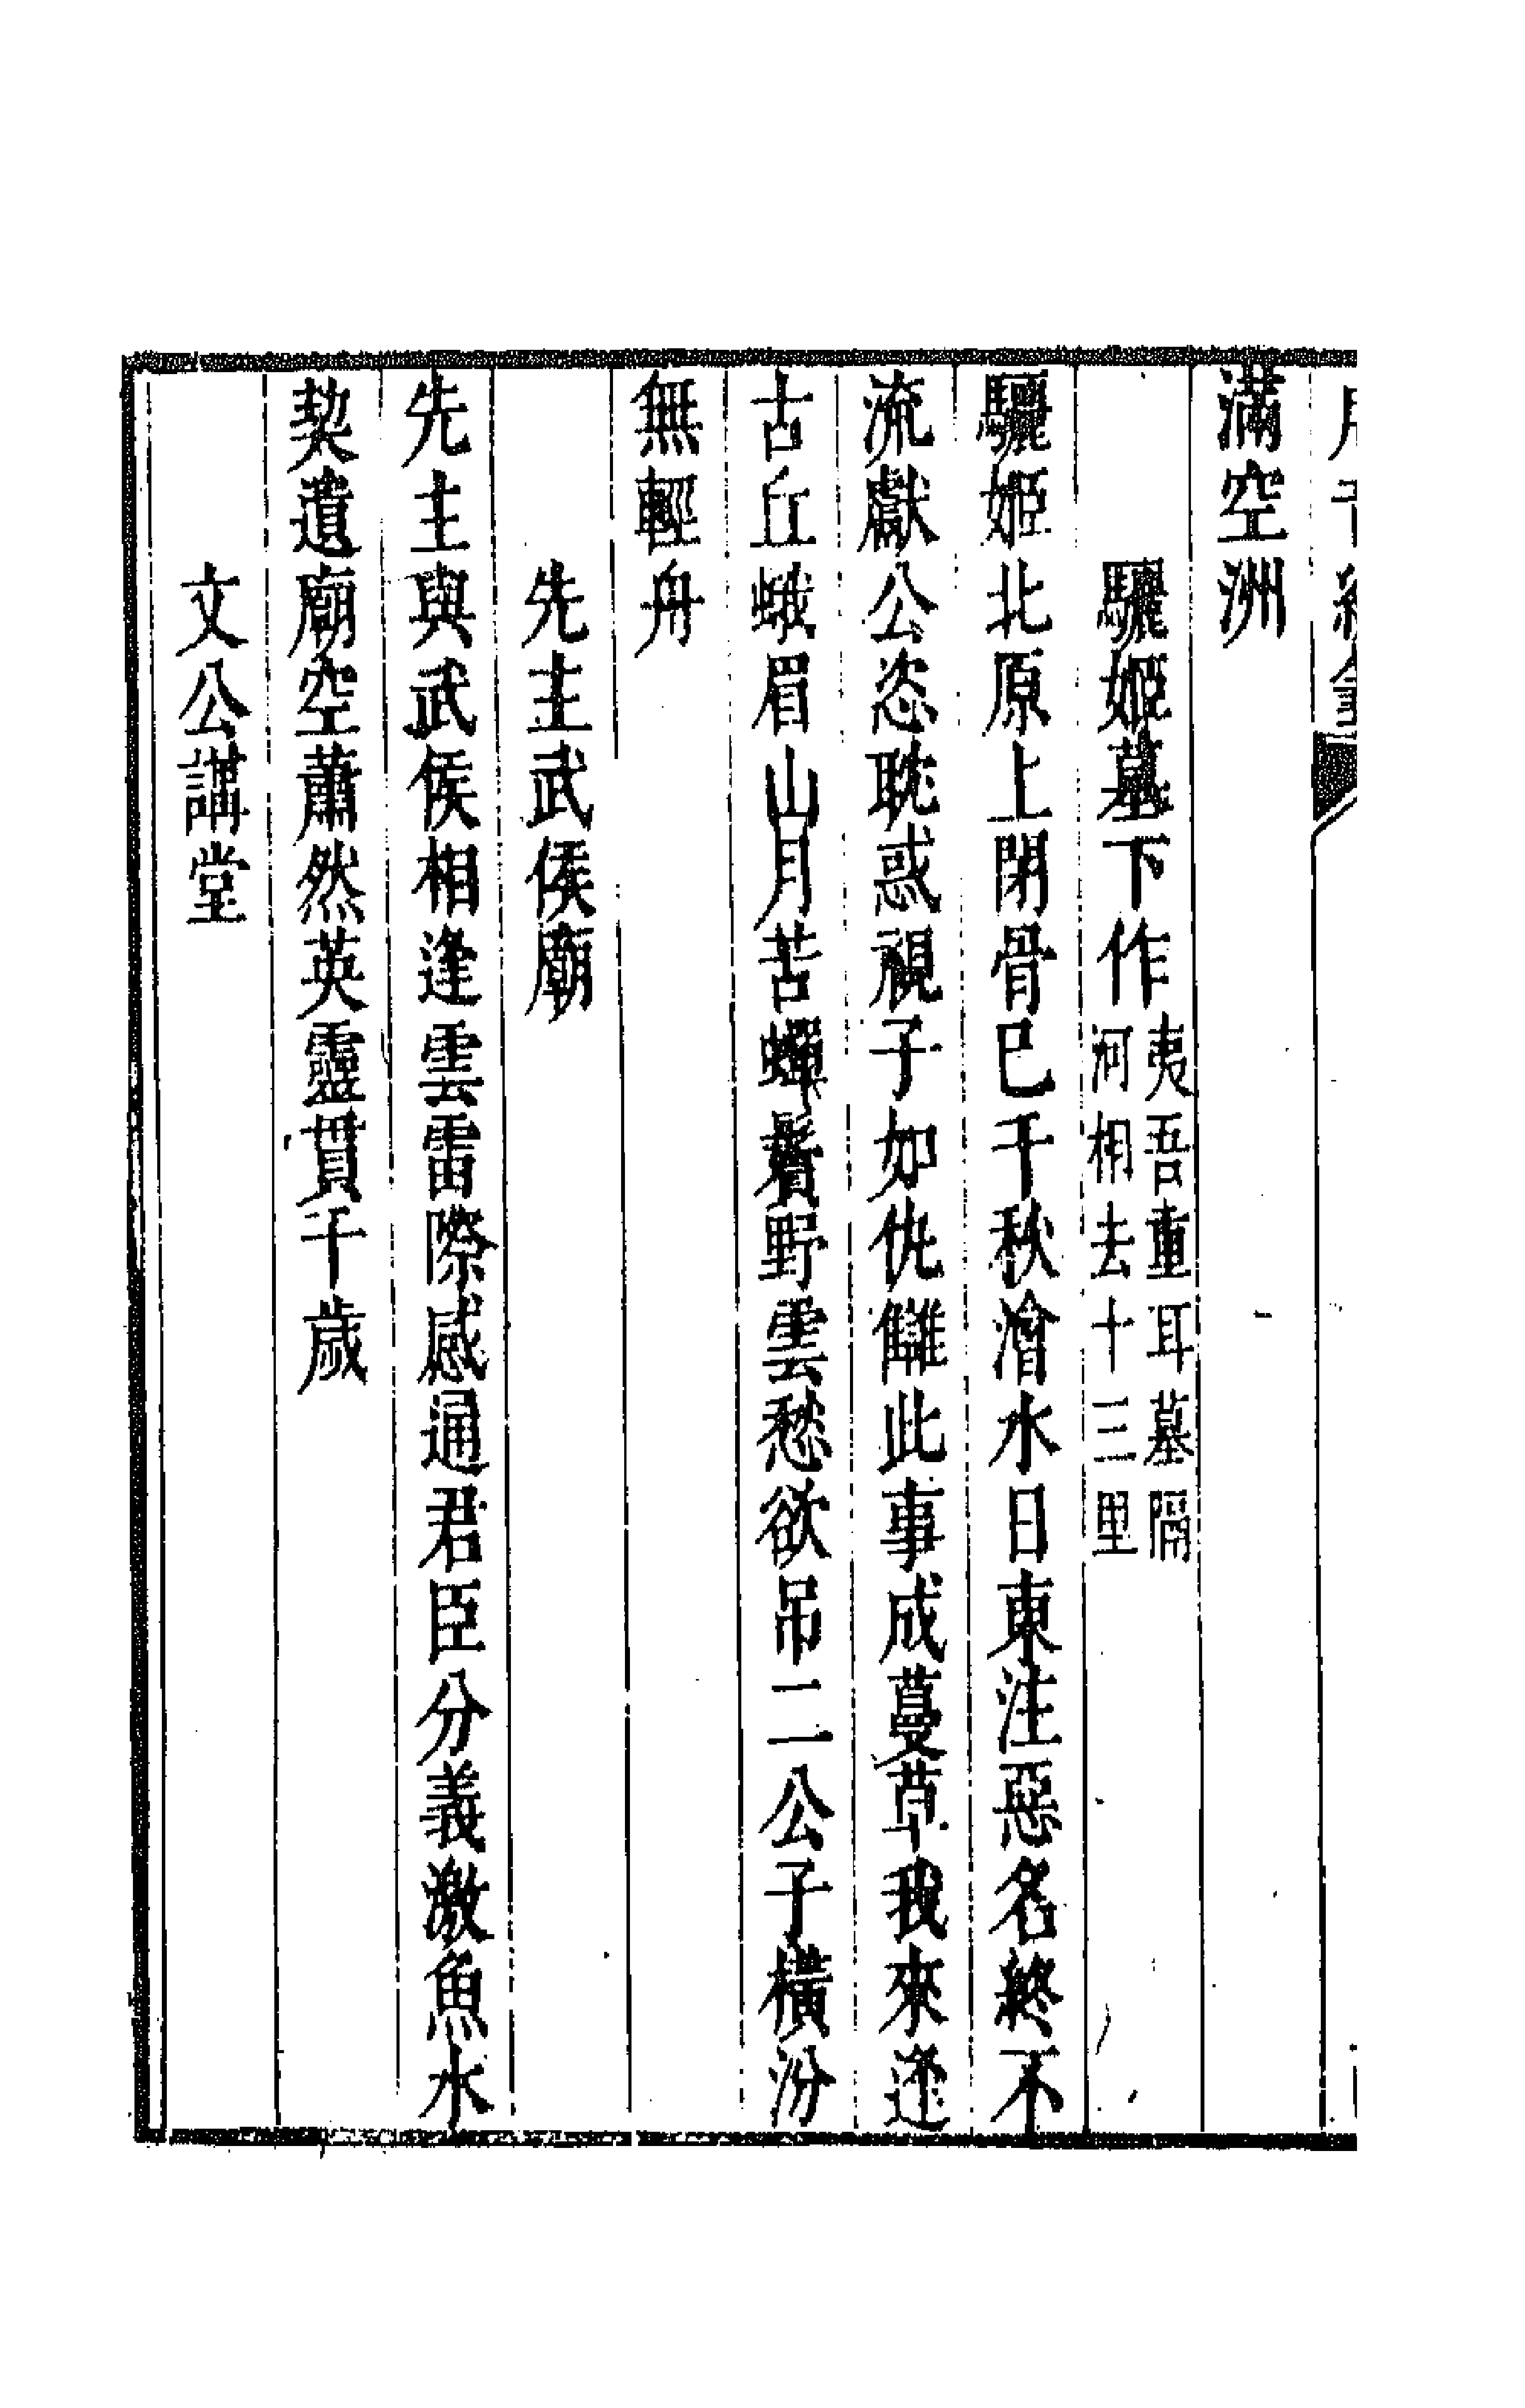 滿空洲
驪姬墓下作夷吾重耳墓隔河相去十三里
驪姬北原上閉骨已千秋澮水日東注惡名終不
流獻公恣耽惑視子如仇讎此事成蔓草我來逢
古丘蛾眉山月苦蟬鬢野雲愁欲吊二公子橫汾
無輕舟
先主武侯廟
先主與武侯相逢雲雷際感通君臣分義激魚水
契遺廟空蕭然英靈貫千歲
文公講堂